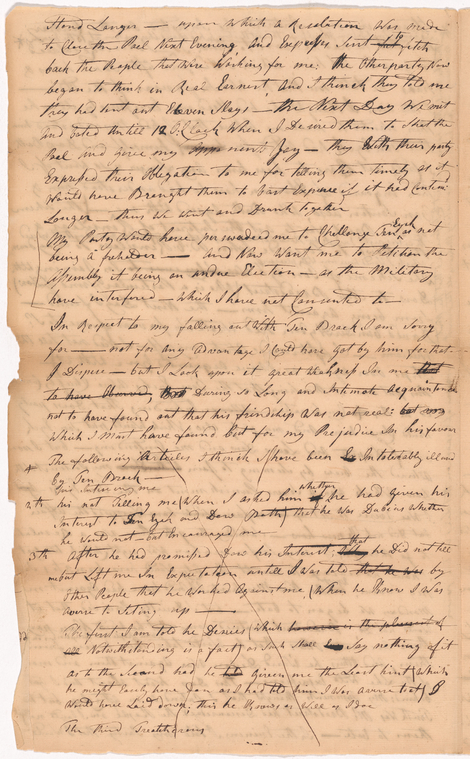 Stand Longer — upon which a Resolution was made
to Close the Poel Next Evening, and Expresses Sent to fetch
back the People that Wire Working for me; the Other party Now
began to think in Real Earnest and I think they told me
they had Sent out Eleven Slays — the Next Day We out
and Voted till 12 O:Clock When I Desired them to Shut the
Poel and give my opponents Joy — they With their party
Expressed their Obligation to me for telling them timely as it
Would have Brought them to Vast Expence if it had Continu
Longer — thus We Went and Drank together
My Party Would have perswaded me to Chellenge Ten Eyck as not
being a freholder — and Now Want me to Petition the
Assembly it being an undue Election — as the Military
have interfered — Which I have not Consented to
In Respect to my falling out With Ten Broeck I am Sorry
for — not for any Advantage I Could have got by him for that
I Dispise — but I Look upon it great Weakness In me
to have During so Long and Intimate acquaintance
not to have found out that his frindship Was not real;
Which I Must have found but for my Prejudice In his favour
The following Articles I think I have been Intolerably illused
by Ten Broeck —
his not Telling me (When I asked him whether he had given his
Intrest to Ten Eyck and that he was Dubious Whether
he Would not but Encouraged me
3th after he had promised his Interest, that he Did not tell
me but Left me In Expectation untill I Was told by
Other People that he Worked against me (When he Know I Was
averse to Setting up —
The first I am told he Denies (Which
Notwithstanding is a fact) as Such Shall Say nothing of it
as to the Second had he given me the Least hint (Which
he might Easily have Don as I had told him I was averse to it) I
Would have Laid down, this he Knows as Well as I Doe
The third Treatcherous